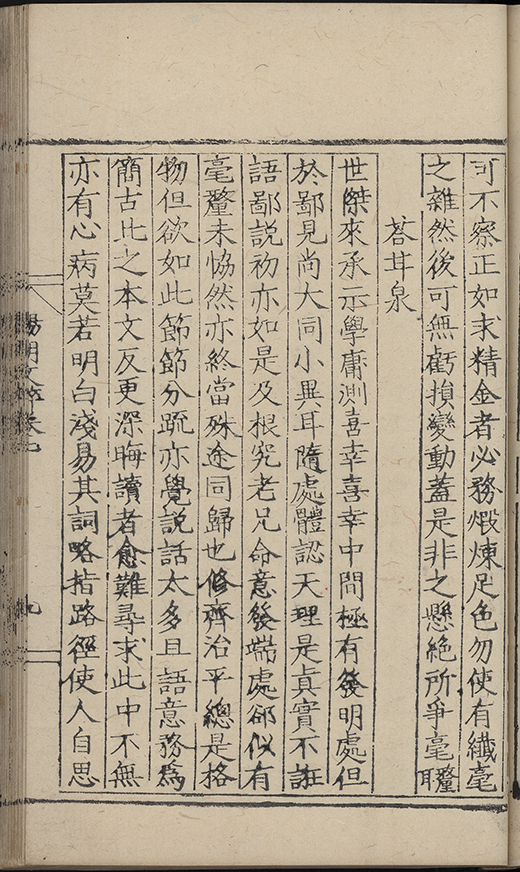 可不察正如求精金者必務煆煉足色勿使有纖毫
之雜然後可無虧損變動蓋是非之懸絕所爭毫釐耳
荅甘泉
世傑來承示學庸測喜幸喜幸中間極有發明處但
於鄙見尚大同小異耳隨處體認天理是眞實不誑
語鄙説初亦如是及根究老兄命意發端處卻似有
毫釐未恊然亦終當殊途同歸也修齊治平總是格
物但欲如此節節分疏亦覺説話太多且語意務爲
簡古比之本文反更深晦讀者愈難尋求此中不無
亦有心病莫若明白淺易其詞略指路徑使人自思
陽明文 卷七
九